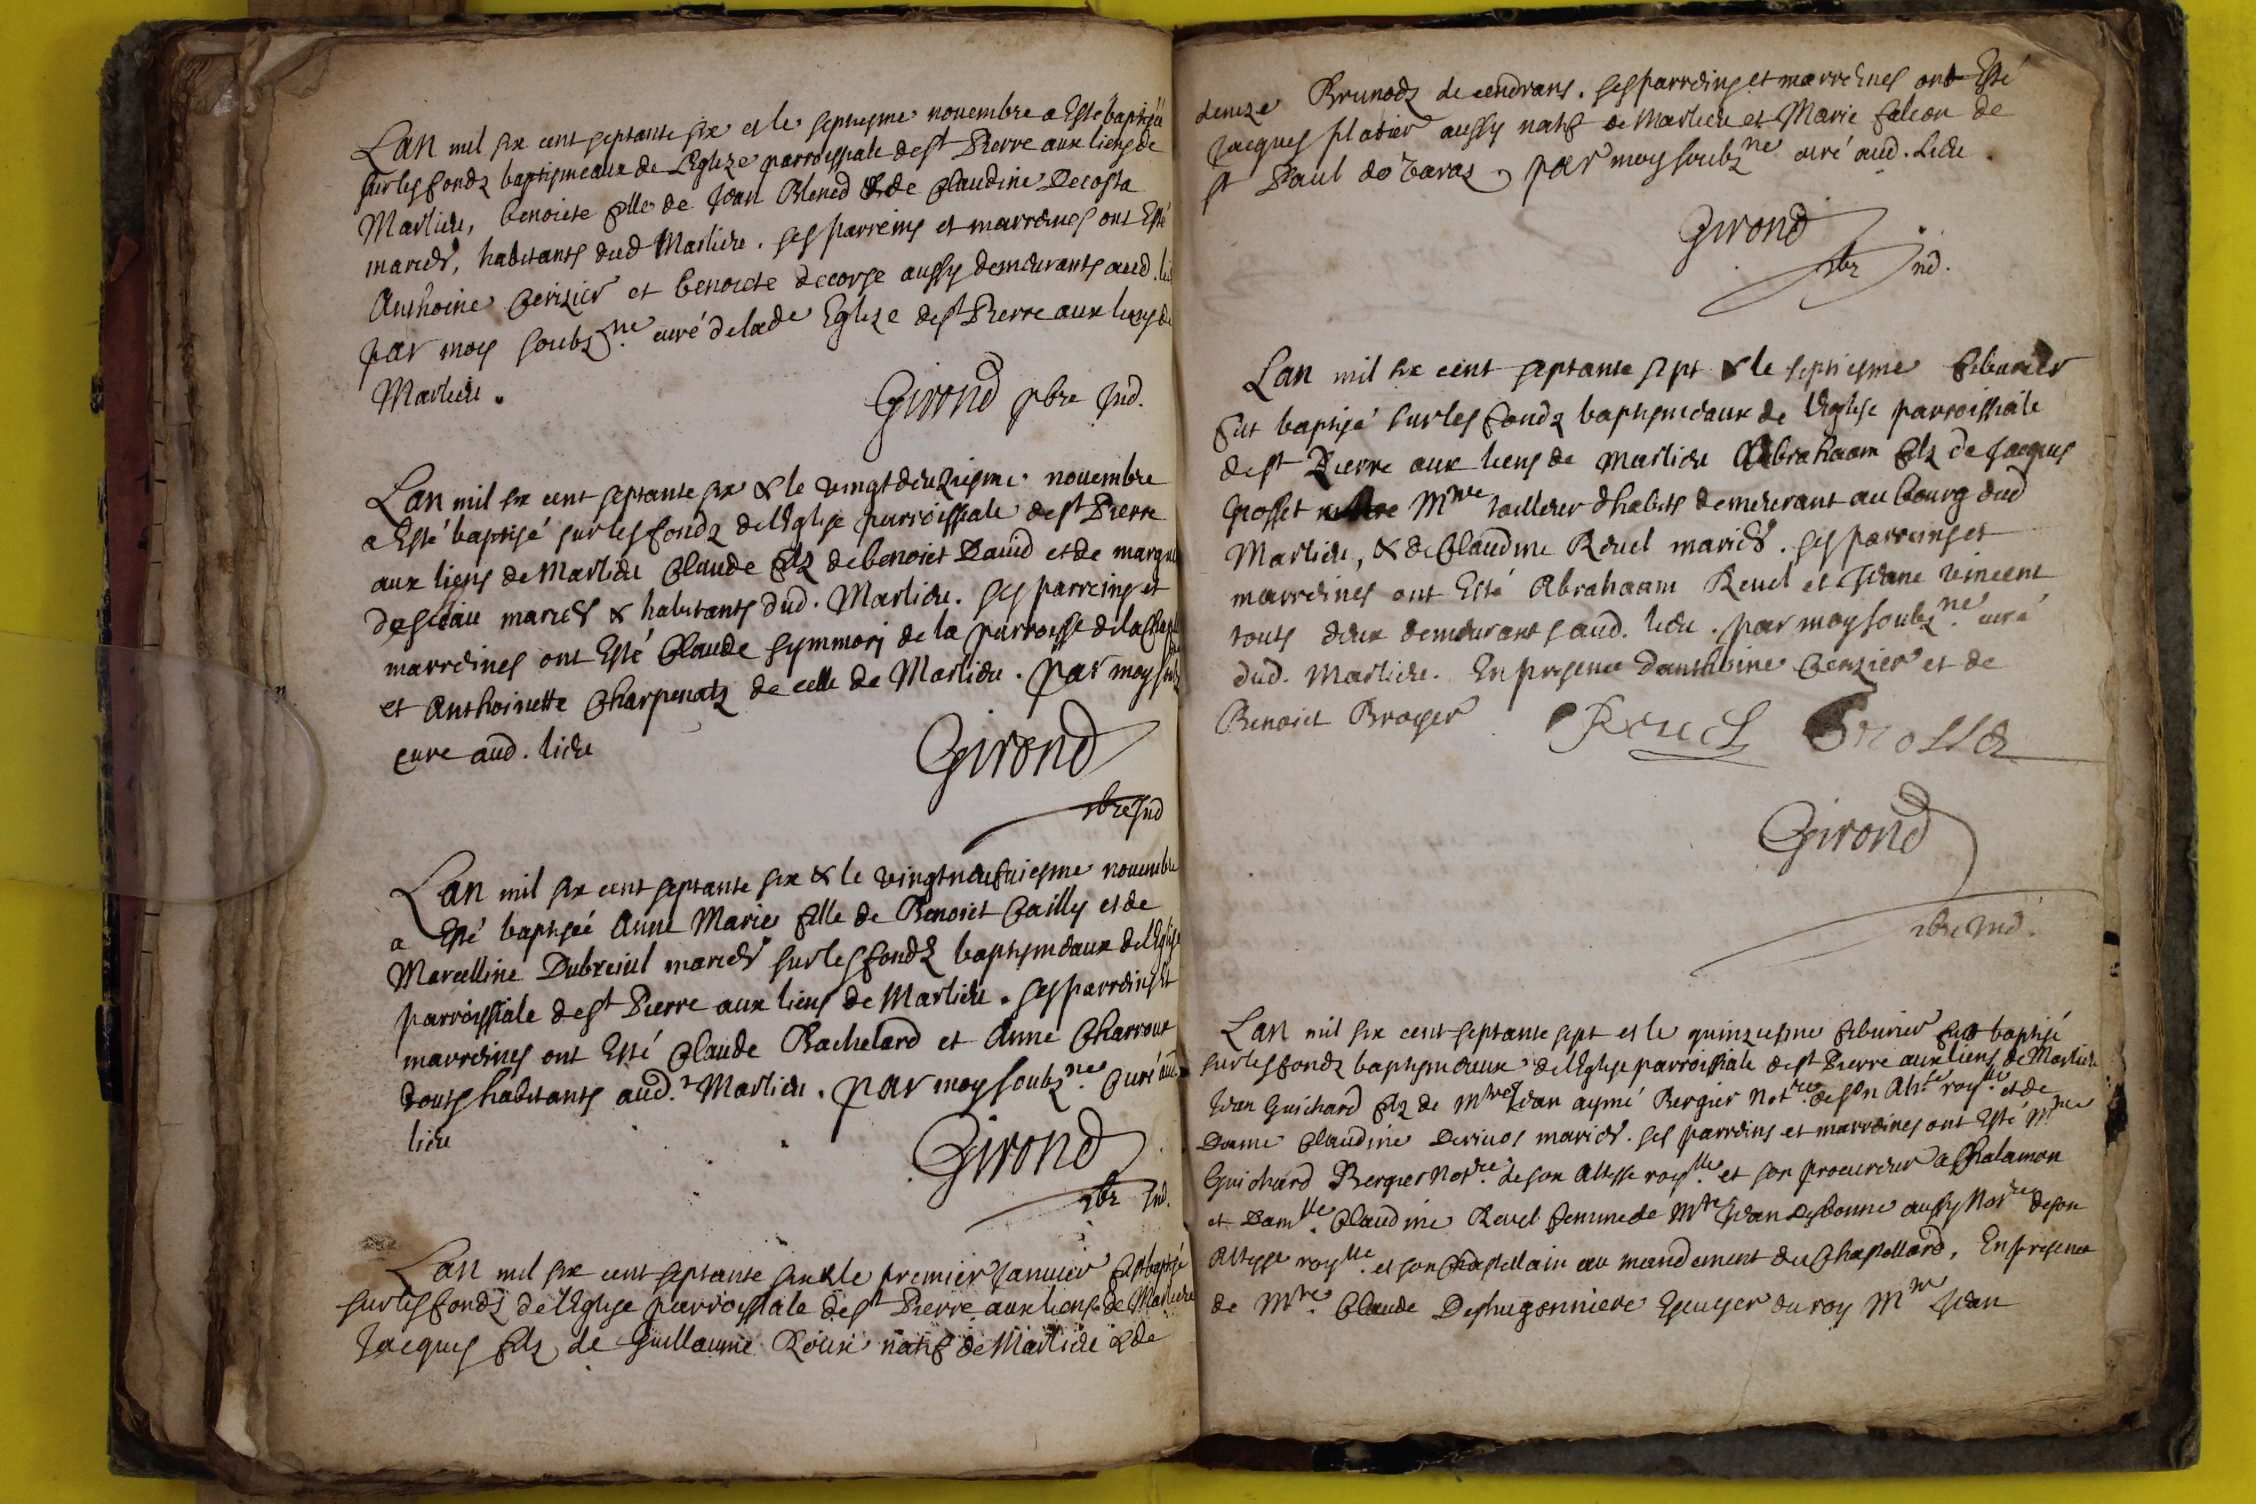 Lan mil six cent septante six et le septiesme nouembre a Esté baptisée
sur les fondz baptismeaux de L'Eglize parroissiale de st Pierre aux liens de
Marlieu, benoiete fille de Jean Blened & de Claudine Decosta
mariés, habitants dud Marlieu. ses parreins et marreines ont Esté
Anthoine Cerizier et benoiete decorge aussy demeurants aud. lieu
par moy soubzne. curé de lade Eglize de st Pierre aux liens de
Marlieu.
Girond pbre Ind.
Lan mil six cent septante six & le vingt deuziesme nouembre
a Esté baptisé sur les fondz de l'Eglise parroissiale de st Pierre
aux liens de Marlieu Claude filz de benoict Dauid et de
mariés & habitants dud. Marlieu. ses parreins et
marreines ont Esté Claude symmori de la parroisse de la
et Anthoinette Charpenatz de celle de Marlieu. par moy
cure aud. lieu
Girond
pbre Ind
Lan mil six cent septante six & le vingt neufuiesme nouembre
a Esté baptisée Anne Marie fille de Benoict Cailly et de
Marcelline Dubreiul mariés sur les fondz baptismeaux de l'Eglise
parroissiale de st Pierre aux liens de Marlieu. ses parreins et
marreines ont Esté Claude Bachelard et Anne Charrout
touts habitants aud. Marlieu. par moy soubzne. Curé aud
lieu
Girond
pbr Ind.
Lan mil six cent septante & le premier januier fut baptisé
sur les fondz de l'Eglise parroissiale de st Pierre aux liens de Marlieu
Jacques filz de Guillaume Roux natif de Marlieu & de
denize Brunodz de cendrans. ses parreins et marreines ont Esté
Jacques platier aussy natif de Marlieu et Marie falcon de
st Paul de Varax, par moy soubzne curé aud. Lieu.
Girond
pbr Ind.
Lan mil six cent septante sept & le septiesme feburier
fut baptisé sur les fondz baptismeaux de l'Eglise parroissiale
de st Pierre aux liens de Marlieu Abrahaam filz de Jacques
Grosset Mtre tailleur d'habits demeurant au bourg dud
Marlieu, & de Claudine Reuel mariés. ses parreins et
marreines ont Esté Abrahaam Reuel et Jeane vincent
touts deux demeurants aud. lieu. par moy soubzne. curé
dud. Marlieu. En presence d'anthoine Cerizier et de
Benoict Broyer Reuel Grosset
Girond
pbre Ind.
Lan mil six cent septante sept et le quinziesme feburier fut baptisé
sur les fondz baptismeaux de l'Eglise parroissiale de st Pierre aux liens de Marlieu
Jean Guichard filz de Mtre Jean aymé Bergier Notre. de son Altse royle. et de
Dame Claudine Deriuos mariés. ses parreins et marreines ont Esté Mtre
Guichard Bergier Notre. de son Altesse royle. et son procureur a Chalamon
et Damlle. Claudine Reuel femme de Mtre Jean Desbonne aussy Notre de son
Altesse royle. et son Chastellain au mandement du Chastellard, En presence
de Mtre. Claude Deshugonniere Escuyer du roy Mtre Jean